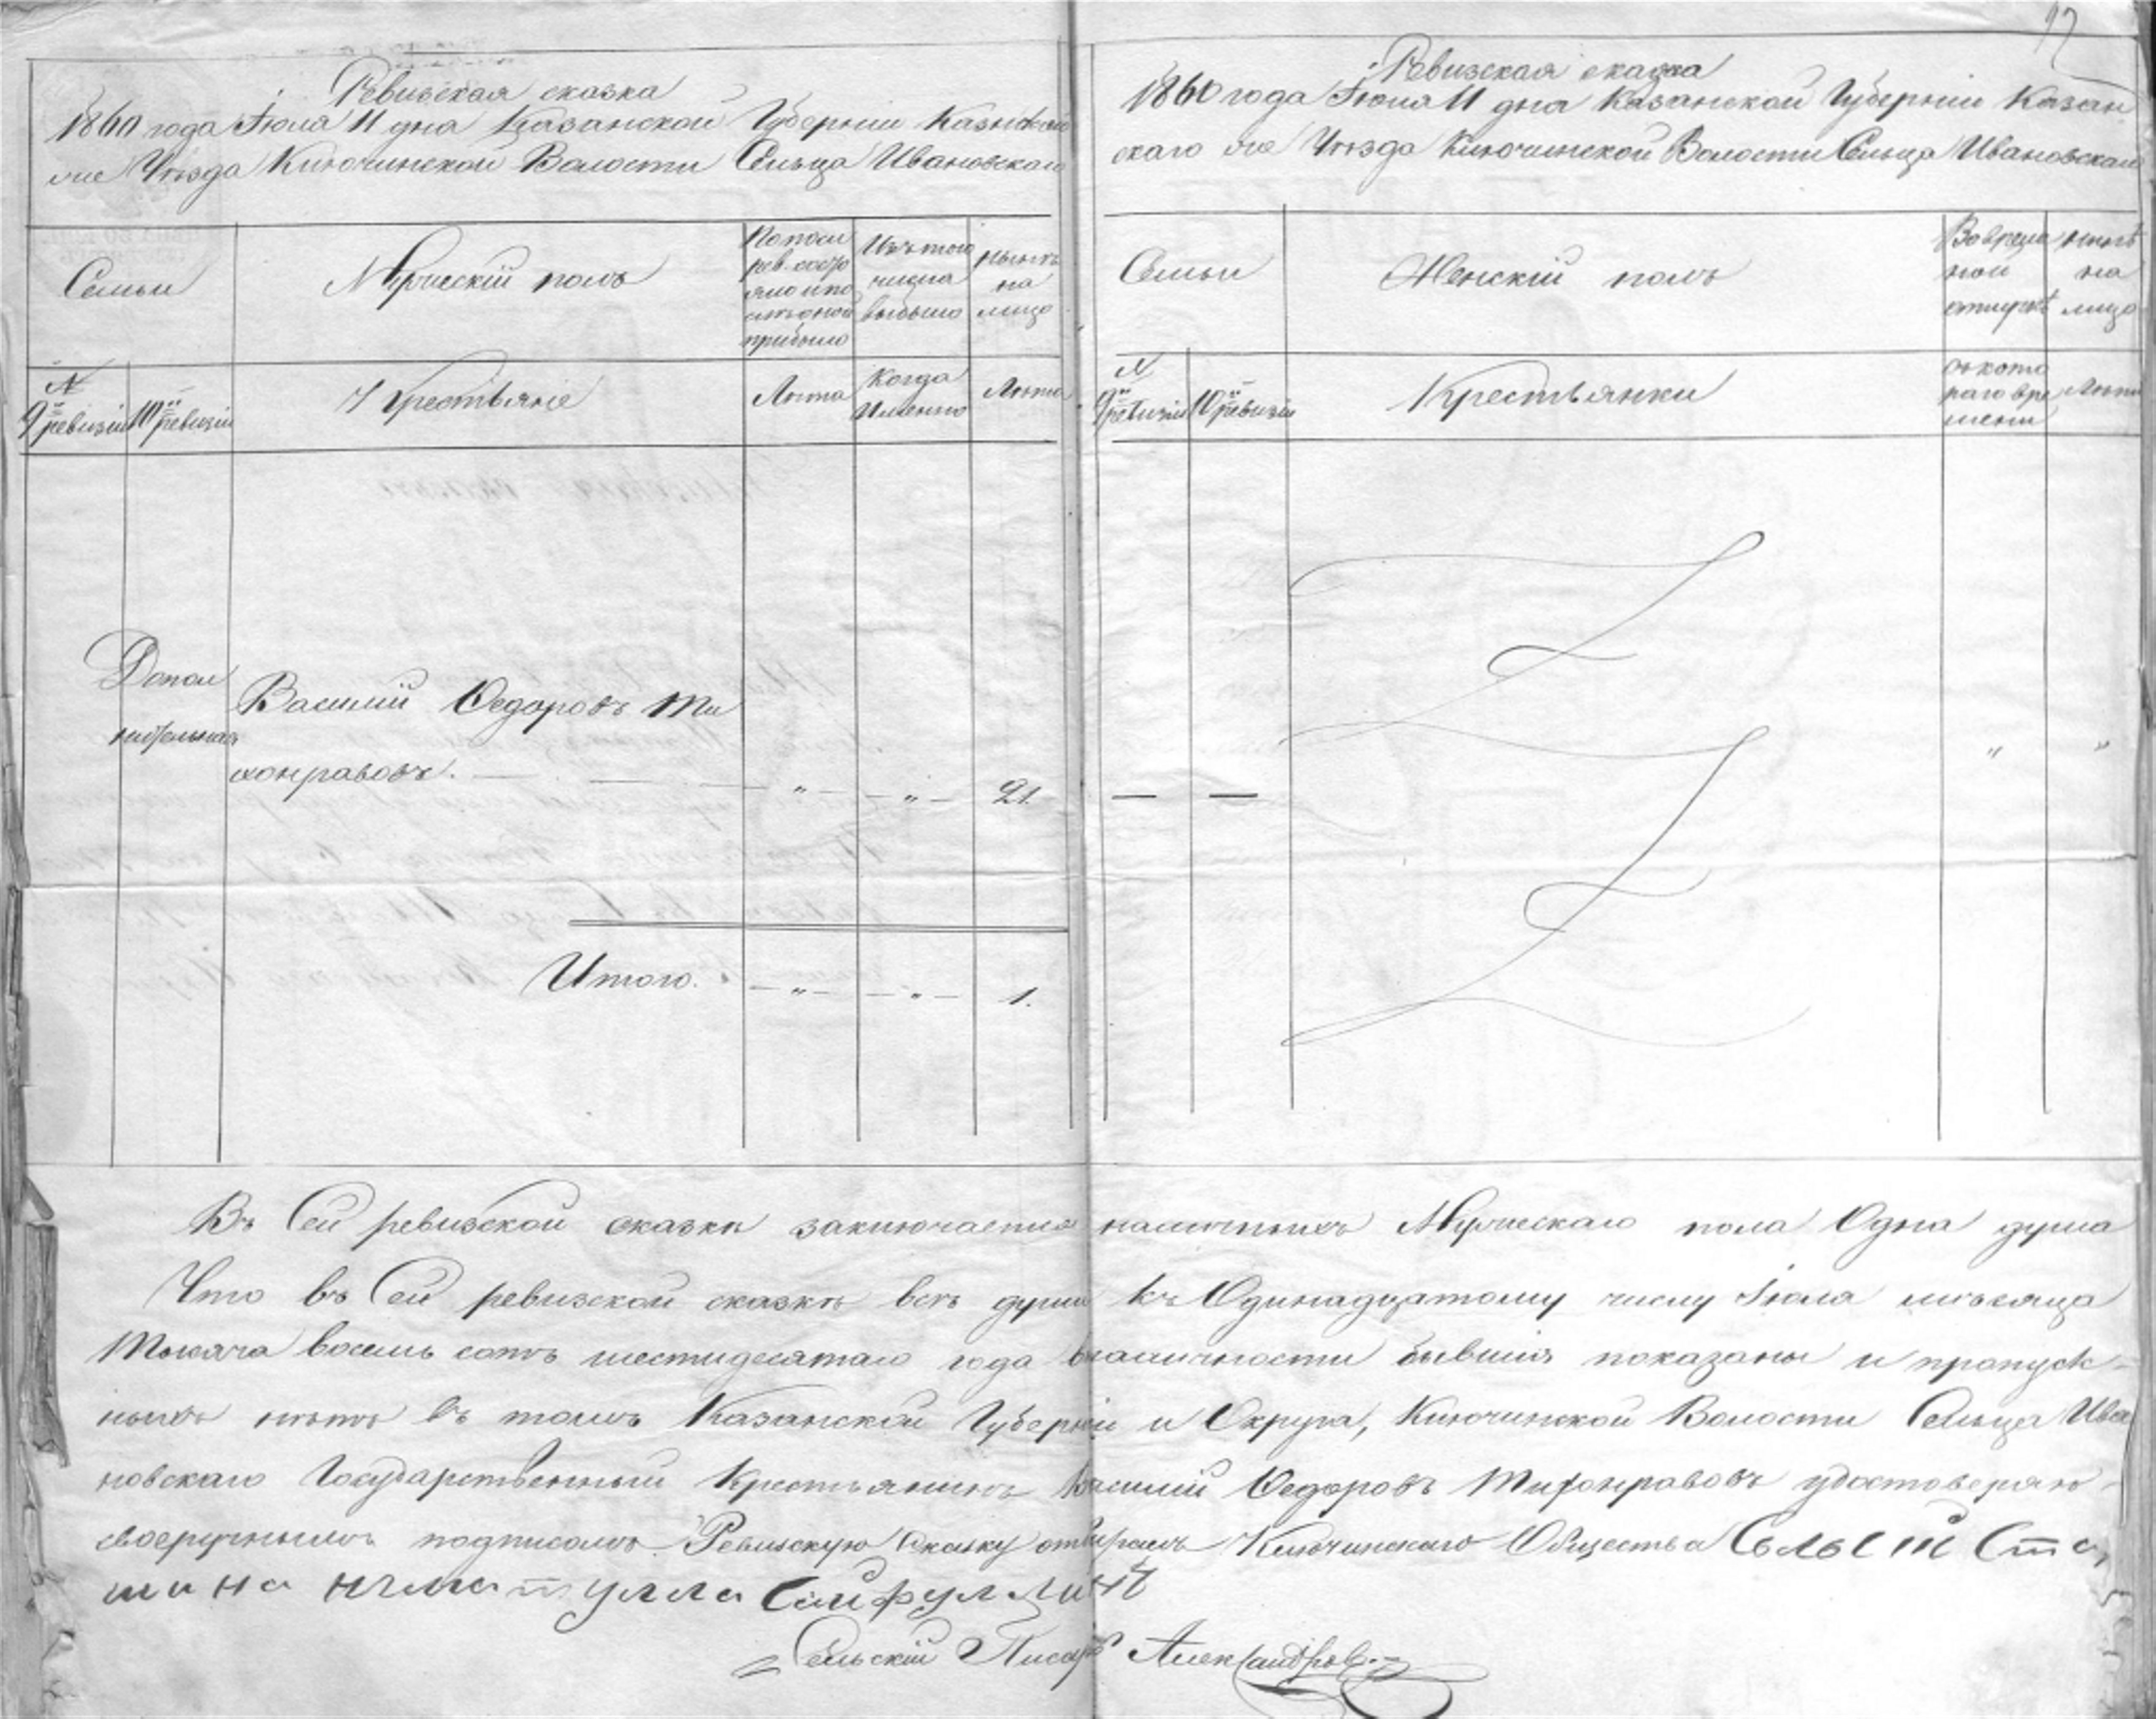 97
Ревизская сказка
1860 года Іюля 11 дня Казанской Губерніи Казанской
же Уѣзда Ключинской Волости Сельца Ивановскаго
Семьи
Мужескій полъ
По посл
рев. состо
яло и по
слѣ оной
прибыло
Изъ того
числа
выбыло
нынѣ
на
лицо
№
9й ревизіи
10й ревизіи
Крестьяніе
Лѣта
Когда
Именно
Лѣта
Допол
нительная
Василий Ѳедоровъ Ти
хонравовъ. — — — „ — „ — 21.
Итого. — „ — — „ — 1.
Ревизская сказка
1860 года Іюля 11 дня Казанской Губерніи Казан
скаго же Уѣзда Ключинской Волости Сельца Ивановскаго
Семьи
Женскій полъ
Во времен
ной
отлучкѣ
нынѣ
на
лицо
№
9й ревизіи
10й ревизіи
Крестьянки
съ кото
раго вре
мени
Лѣта
— — „ „
Въ Сей ревизской сказкѣ заключается наличныхъ Мужескаго пола Одна душа
Что въ Сей ревизской сказкѣ всѣ души къ Одинадцатому числу Іюля мѣсяца
Тысяча восемь сотъ шестидесятаго года вналичности бывшія показаны и пропуск-
ныхъ нѣтъ въ томъ Казанской Губерніи и Округа, Ключинской Волости Сельца Ива
новскаго Государственный Крестьянинъ Василий Ѳедоровъ Тихонравовъ удостоверяю
своеручнымъ подписомъ Ревизскую Сказку отбиралъ Ключинскаго Общества Сельский Ста
шина нигматулла Сайфуллинъ
Сельскій Писарь Александровъ.